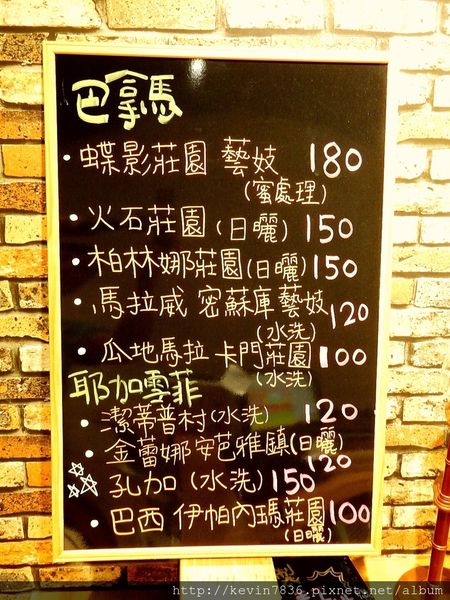 巴拿馬
• 蝶影莊園 藝妓 180
(蜜處理)
• 火石莊園(日曬) 150
• 柏林娜莊園(日曬) 150
• 馬拉威 密蘇庫藝妓 120
(水洗)
• 瓜地馬拉 卡門莊園 100
(水洗)
耶加雪菲
• 潔蒂普村(水洗) 120
• 金蕾娜安芭雅鎮(日曬)
120
孔加 (水洗) 150
• 巴西 伊帕內瑪莊園 100
(日曬)
http://kevin7836.pixnet.net/album